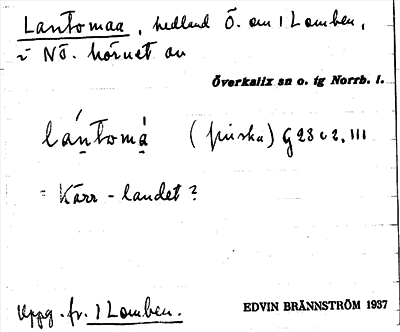 Lantomaa, hedland Ö. om 1 Lomben,
i NÖ. hörnet av
Överkalix sn o. tg Norrb. l.
lántomá̀ (finska) G 23 c 2, III
= Kärr-landet?
Uppg. fr. 1 Lomben.
EDVIN BRÄNNSTRÖM 1937